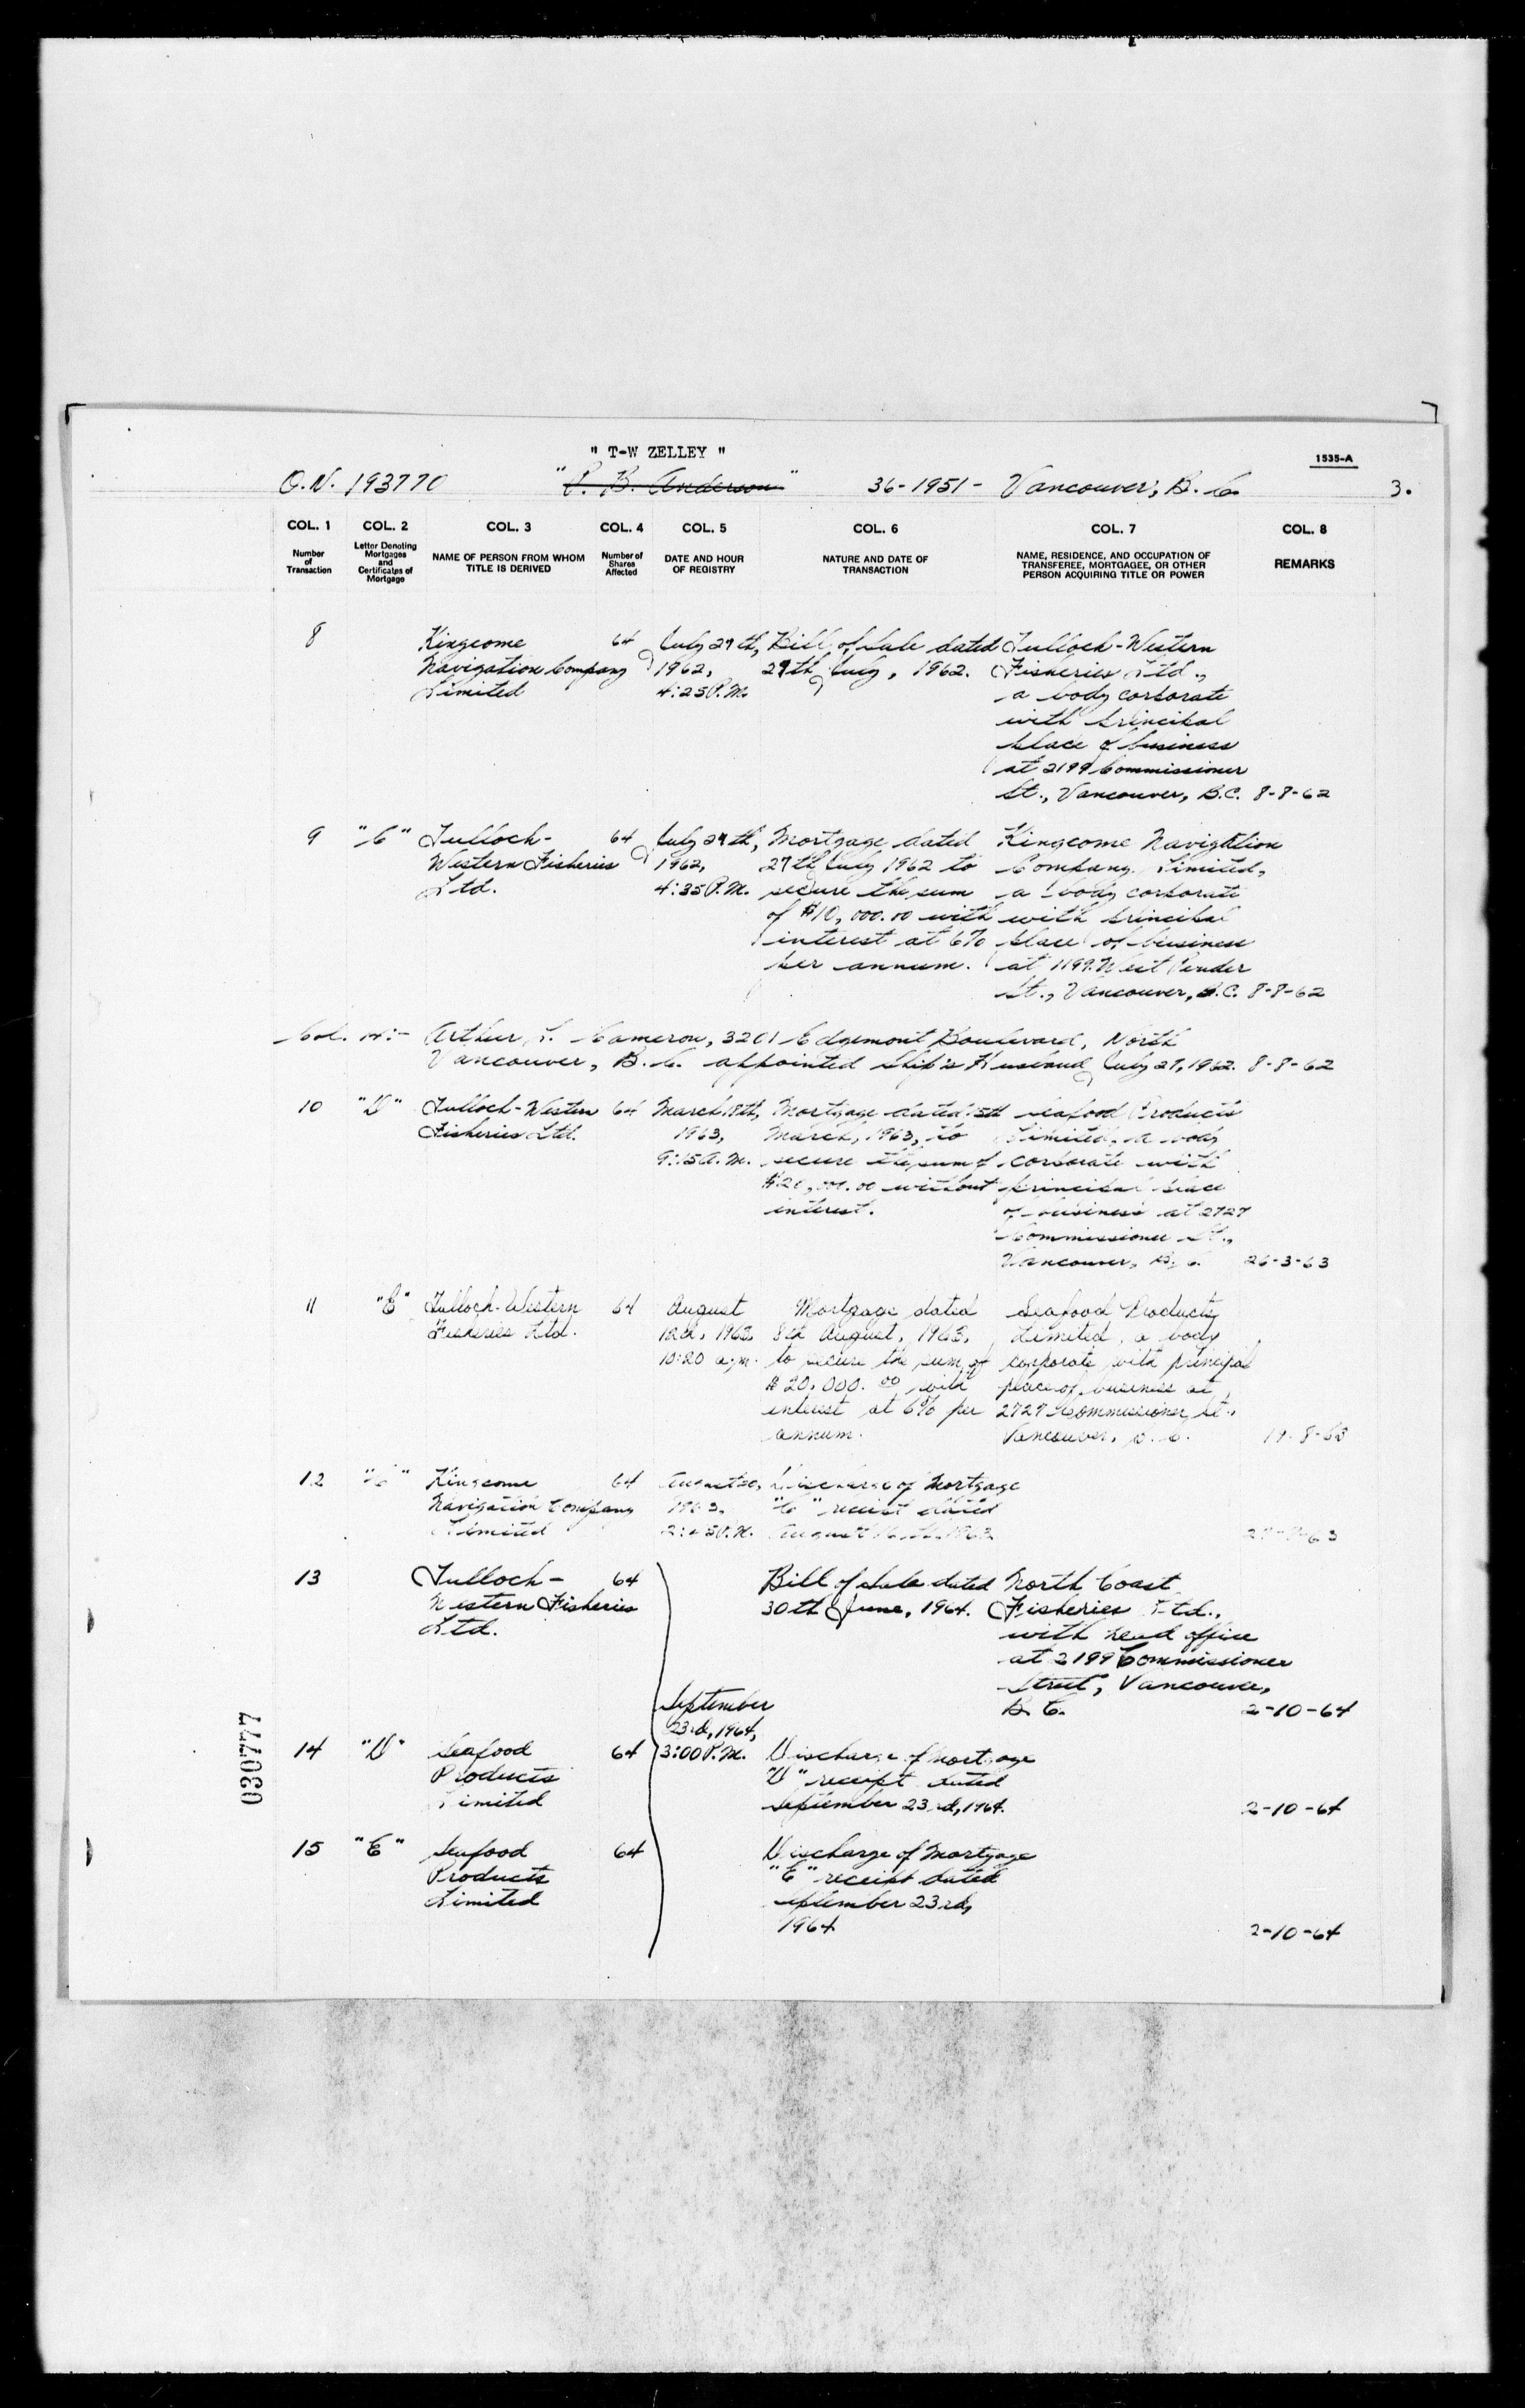 " T-W ZELLEY "
1535-A
O.N. 193770 "P. B. Anderson" 36-1951- Vancouver, B. C. 3.
COL. 1 COL. 2 COL. 3 COL. 4 COL. 5 COL. 6 COL. 7 COL. 8
Number of Transaction
Letter Denoting Mortgages and Certificates of Mortgage
NAME OF PERSON FROM WHOM TITLE IS DERIVED
Number of Shares Affected
DATE AND HOUR OF REGISTRY
NATURE AND DATE OF TRANSACTION
NAME, RESIDENCE, AND OCCUPATION OF TRANSFEREE, MORTGAGEE, OR OTHER PERSON ACQUIRING TITLE OR POWER
REMARKS
8 Kingcome 64 July 27th, Bill of Sale dated Tulloch-Western
Navigation Company 1962, 27th July, 1962. Fisheries Ltd.,
Limited 4:25 P.M. a body corporate
with principal
place of business
at 2199 Commissioner
St., Vancouver, B.C. 8-8-62
9 "C" Tulloch- 64 July 27th, Mortgage dated Kingcome Navigation
Western Fisheries 1962, 27th July 1962 to Company Limited,
Ltd. 4:35 P.M. secure the sum a body corporate
of $10,000.00 with with principal
interest at 6% place of business
per annum. at 1199 West Pender
St., Vancouver, B.C. 8-8-62
Arthur Cameron, 3201 Edgemont Boulevard, North
Vancouver, B.C. appointed Ship's Husband July 27, 1962. 8-8-62
10 "D" Tulloch-Western 64 March 18th, Mortgage dated 15th Seafood Products
Fisheries Ltd. 1963, March, 1963, to Limited, a body
9:15 A.M. secure the sum of corporate with
$20,000.00 without principal place
interest. of business at 2727
Commissioner St.,
Vancouver, B.C. 26-3-63
11 "E" Tulloch-Western 64 August Mortgage dated Seafood Products
Fisheries Ltd. 12th, 1963, 8th August, 1963, Limited, a body
10:20 a.m. to secure the sum of corporate with principal
$20,000.00 with place of business at
interest at 6% per 2727 Commissioner St.,
annum. Vancouver, B.C.
12 "C" Kingcome 64 Discharge of Mortgage
Navigation Company 1963, "C" receipt dated
Limited August
13 Tulloch- 64 Bill of Sale dated North Coast
Western Fisheries 30th June, 1964. Fisheries Ltd.,
Ltd. with head office
at 2199 Commissioner
Street, Vancouver,
September B.C. 2-10-64
23rd, 1964,
14 "D" Seafood 64 3:00 P.M. Discharge of Mortgage
Products "D" receipt dated
Limited September 23rd, 1964. 2-10-64
15 "E" Seafood 64 Discharge of Mortgage
Products "E" receipt dated
Limited September 23rd,
1964 2-10-64
030777